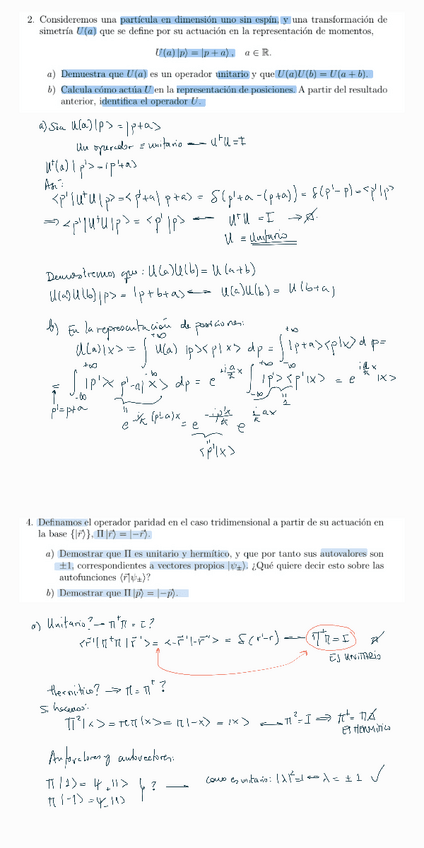 2. Consideremos una partícula en dimensión uno sin espín, y una transformación de
simetría U(a) que se define por su actuación en la representación de momentos,
U(a) |p⟩ = |p + a⟩ , a ∈ ℝ.
a) Demuestra que U(a) es un operador unitario y que U(a)U(b) = U(a + b).
b) Calcula cómo actúa U en la representación de posiciones. A partir del resultado
anterior, identifica el operador U.
a) Sea U(a)|p> = |p+a>
Un operador = unitario — U†U = I
U†(a)|p'> = ⟨p'+a⟩
Así:
<p'|U†U|p> = <p'+a|p+a> = δ(p'+a-(p+a)) = δ(p'-p) = <p'|p>
⇒ <p'|U†U|p> = <p'|p> — U†U = I →
U = Unitario
Demostremos que: U(a)U(b) = U(a+b)
U(a)U(b)|p> = |p+b+a> U(a)U(b) = U(b+a)
b) En la representación de posiciones:
U(a)|x> = ∫ U(a) |p><p|x> dp = ∫ |p+a><p|x> dp =
= ∫ |p'><p'-a|x> dp = e ∫ |p'><p'|x> = e |x>
p'=p+a
<p'|x>
4. Definamos el operador paridad en el caso tridimensional a partir de su actuación en
la base {|r⃗⟩}, Π |r⃗⟩ = |−r⃗⟩.
a) Demostrar que Π es unitario y hermítico, y que por tanto sus autovalores son
±1, correspondientes a vectores propios |ψ±⟩. ¿Qué quiere decir esto sobre las
autofunciones ⟨r⃗|ψ±⟩?
b) Demostrar que Π |p⃗⟩ = |−p⃗⟩.
a) Unitario? → Π†Π = I ?
Π†Π = I
ES UNITARIO
Hermítico? → Π = Π† ?
Si hacemos:
Π²|x> = ΠΠ|x> = Π|-x> = |x> Π² = I ⇒ Π† = Π
ES HERMÍTICO
Autovalores y autovectores:
como es unitario: |λ|²=1 λ = ±1 ✓